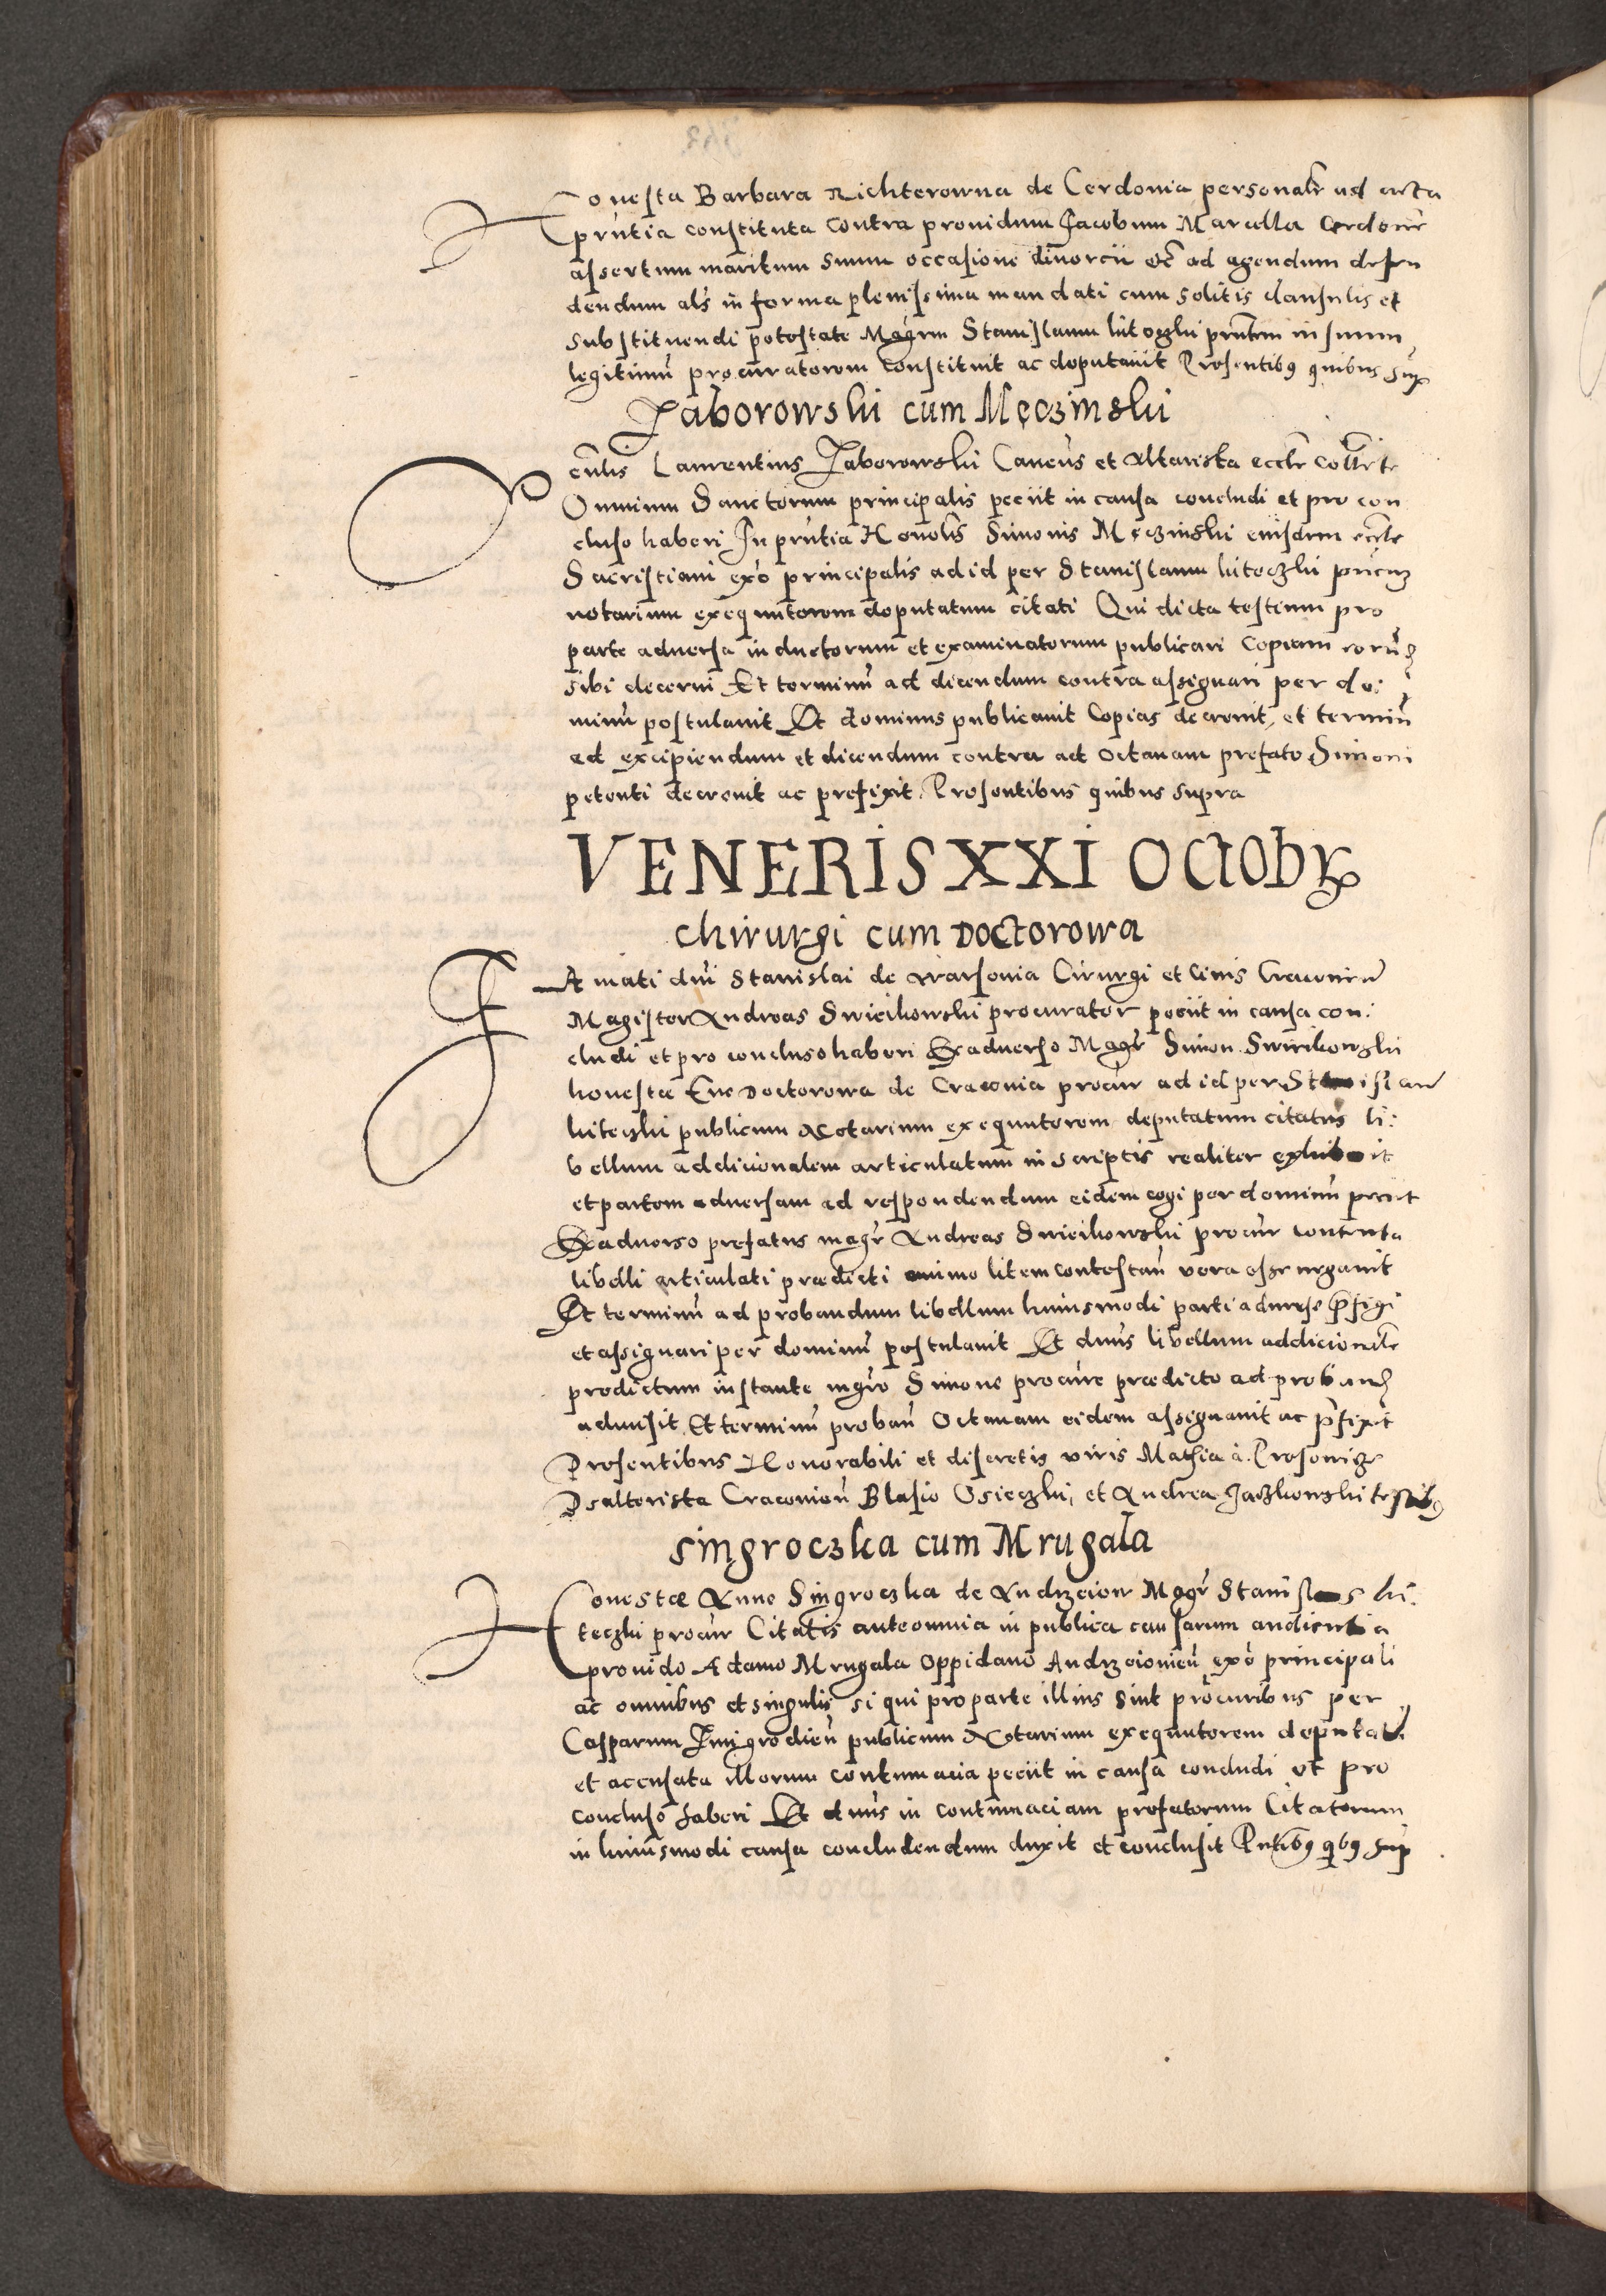 Honesta Barbara Richterowna de Cerdonia personalr ad acta
prntia constituta contra prouidum Jacobum Marcella Cerdonē
assertum maritum suum occasione diuorcii etc ad agendum defen
dendum als in forma plenissima mandati cum solitis clausulis et
substituendi potestate Magrm Stanislaum kiteczki prntem in suum
legitimū procuratorem constituit ac deputauit Presentibq quibus sup
Zaborowski cum Męczinski
Dencrilis Laurentius Zaborowski Caneus et Altarista eccle collte
Omnium Sanctorum principalis peciit in causa concludi et pro con
cluso haberi In prntia Honolis Simonis Męczinski eiusdem eccle
Sacristiani exō principalis ad id per Stanislaum kiteczki pucuz
notarium exequutorem deputatum citati Qui dicta testium pro
parte aduersa inductorum et examinatorum publicari Copiam eorūz
sibi decerni Et terminū ad dicendum contra assignari per do:
minū postulauit Et dominus publicauit Copias decreuit, et terminū
ad excipiendum et dicendum contra ad Octauam prefato Simoni
petenti decreuit ac prefixit. Presentibus quibus supra
VENERIS XXI OCTOBR
chirurgi cum Doctorowa
Famati dni Stanislai de Warsouia Cirurgi et Ciuis Cracouien
Magister Andreas Swieikowski procurator peciit in causa con:
cludi et pro concluso haberi Ex aduerso Magr Simon Swieikowski
honestæ Eue Doctorowa de Cracouia procur ad id per Stanislaum
kiteczki publicum Notarium exequutorem deputatum citatus li:
bellum addicionalem articulatum in scriptis realiter exhibuit
et partem aduersam ad respondendum eidem cogi per dominū peciit
Ex aduerso prefatus magr Andreas Swieikowski procur contenta
libelli articulati prædicti animo litem contestan vera esse negauit
Et terminū ad probandum libellum huiusmodi parti aduerse pfigi
et assignari per dominū postulauit Et dnus libellum addicionale
predictum instante mgro Simone procure prædicto ad proband
admisit Et terminū proban Octauam eidem assignauit ac pfixit
Presentibus Honorabili et discretis viris Mathia à. Prosouize
Psalterista Cracouien Blasio Osieczki, et Andrea Jaczkowski testibq
Singroczka cum Mrugala
Honestæ Anne Singroczka de Andrzeiow Magr Stanislaus ki:
teczki procur Citatis ante omnia in publica causarum audientia
prouido Adamo Mrugala Oppidano Andrzeiouien exō principali
ac omnibus et singulis si qui pro parte illius sint procuribus per
Casparum Zmigrodien publicum Notarium exequutorem deputati
et accusata illorum contumacia peciit in causa concludi et pro
concluso haberi Et dnus in contumaciam prefatorum Citatorum
in huiusmodi causa concludendum duxit et conclusit Pntibq qibq sup